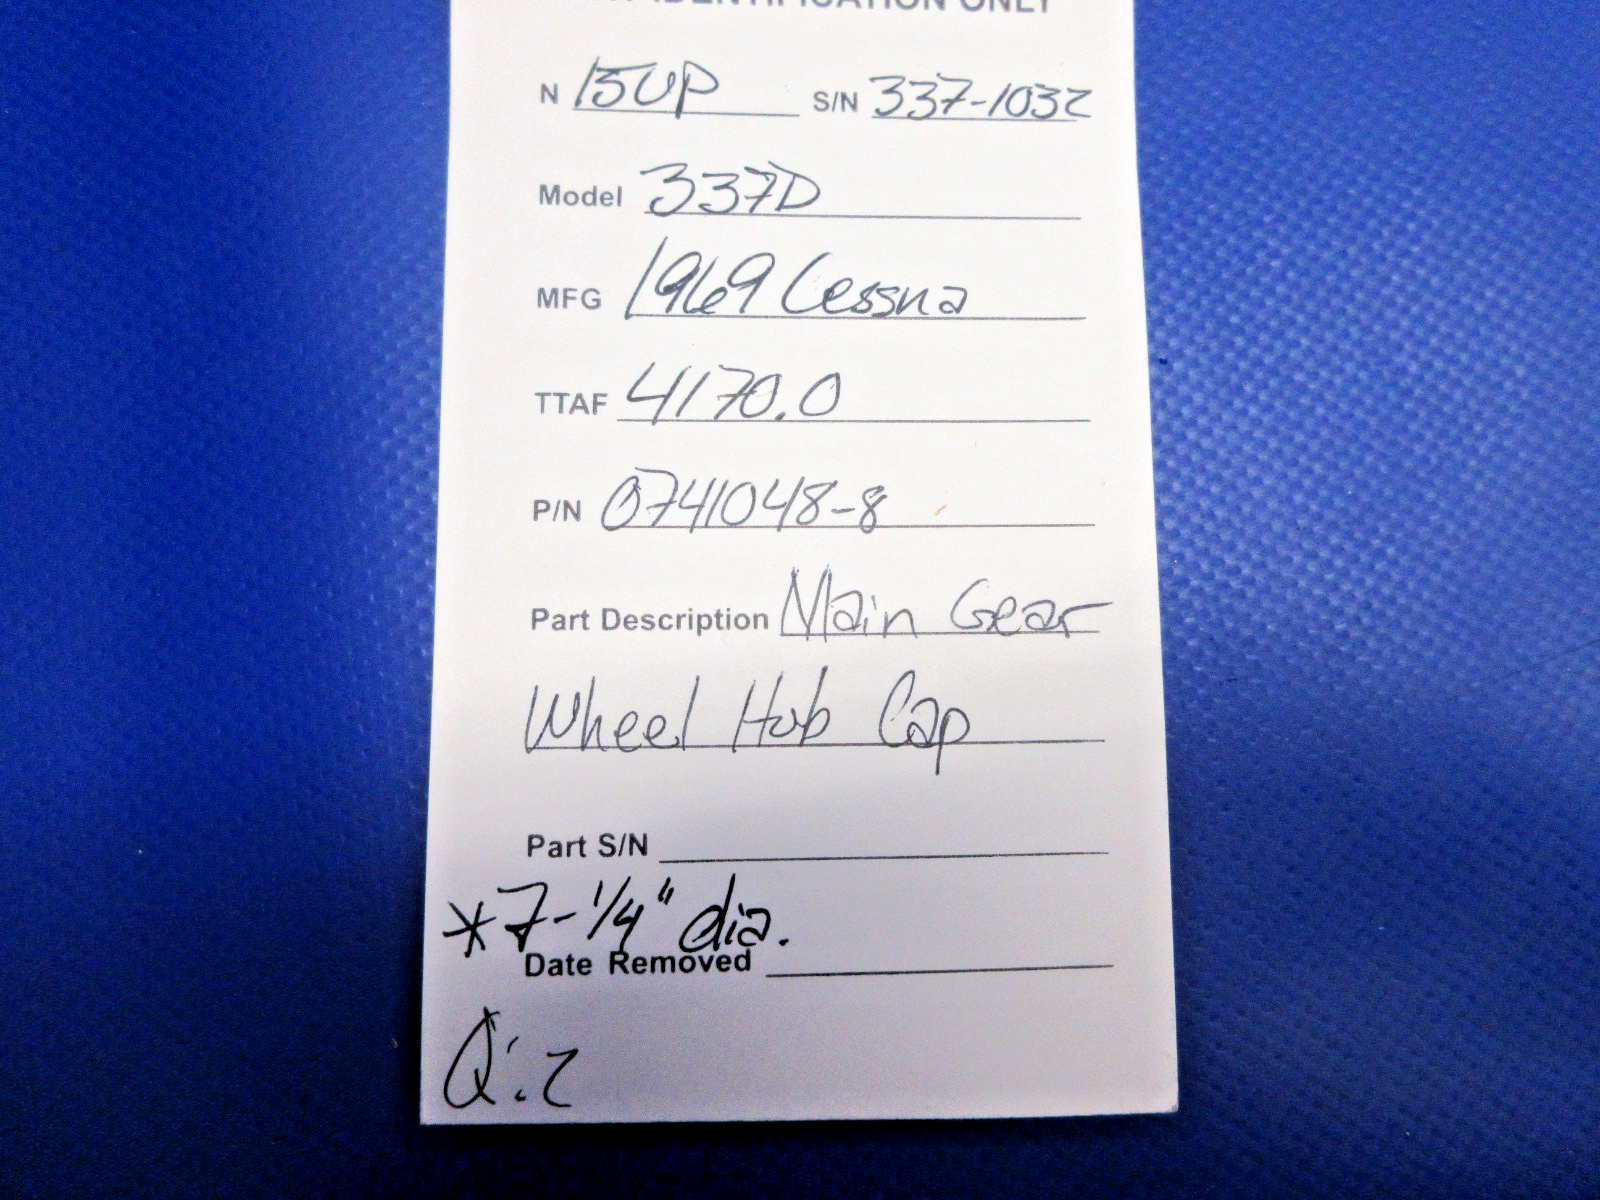 IDENTIFICATION ONLY
N 15UP S/N 337-1032
Model 337D
MFG 1969 Cessna
TTAF 4170.0
P/N 0741048-8
Part Description Main Gear
Wheel Hub Cap
Part S/N
*7-1/4" dia.
Date Removed
Q:2